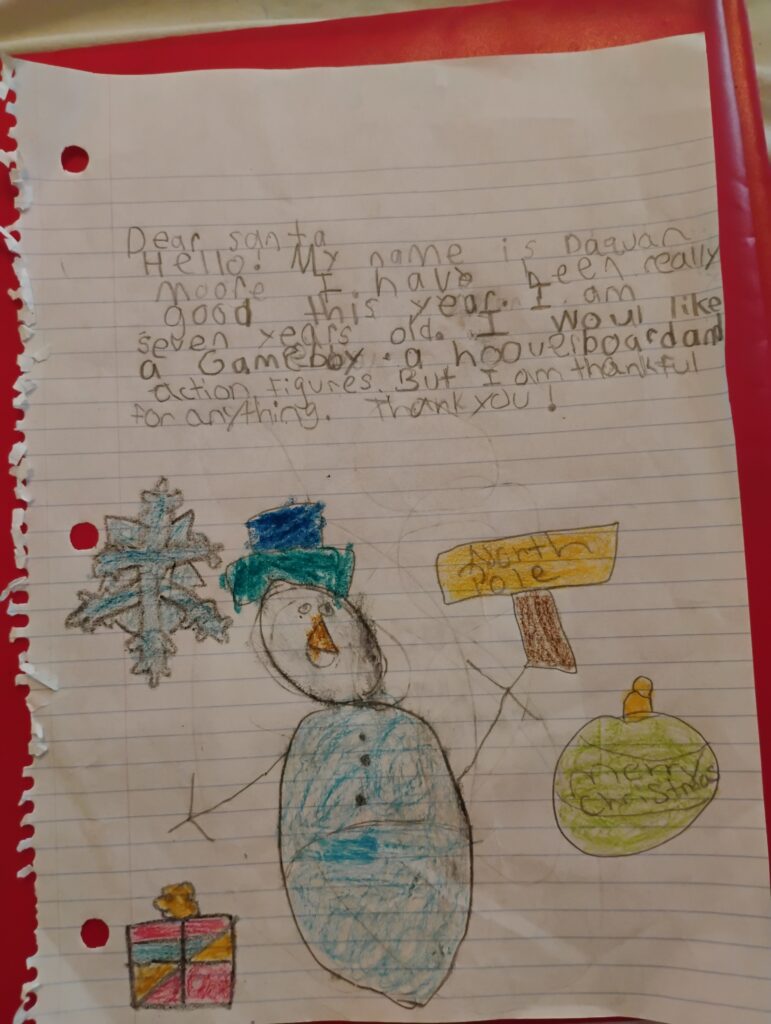 Dear santa
Hello! My name is Daquan
moore I have been really
good this year. I am
seven years old. I woul like
a Gameboy. a hooverboard and
action figures. But I am thankful
for anything. Thank you!
North
Pole
merry
christmas